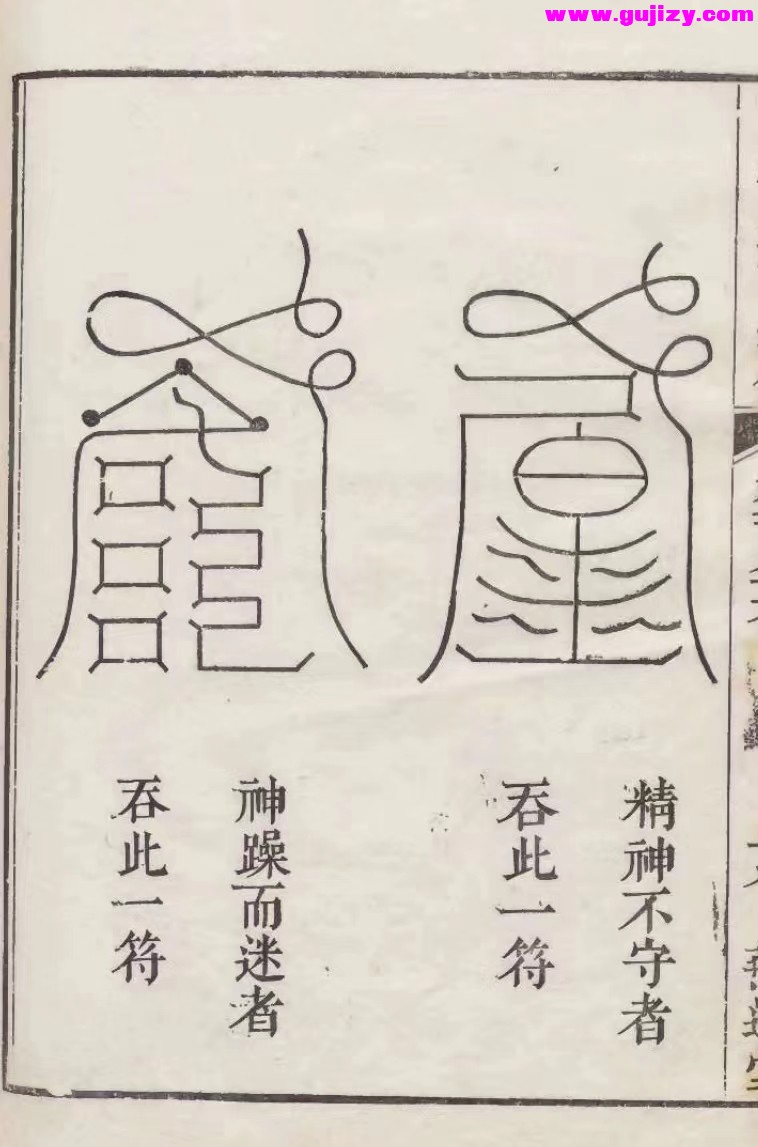 www.gujizy.com
精神不守者
吞此一符
神躁而迷者
吞此一符